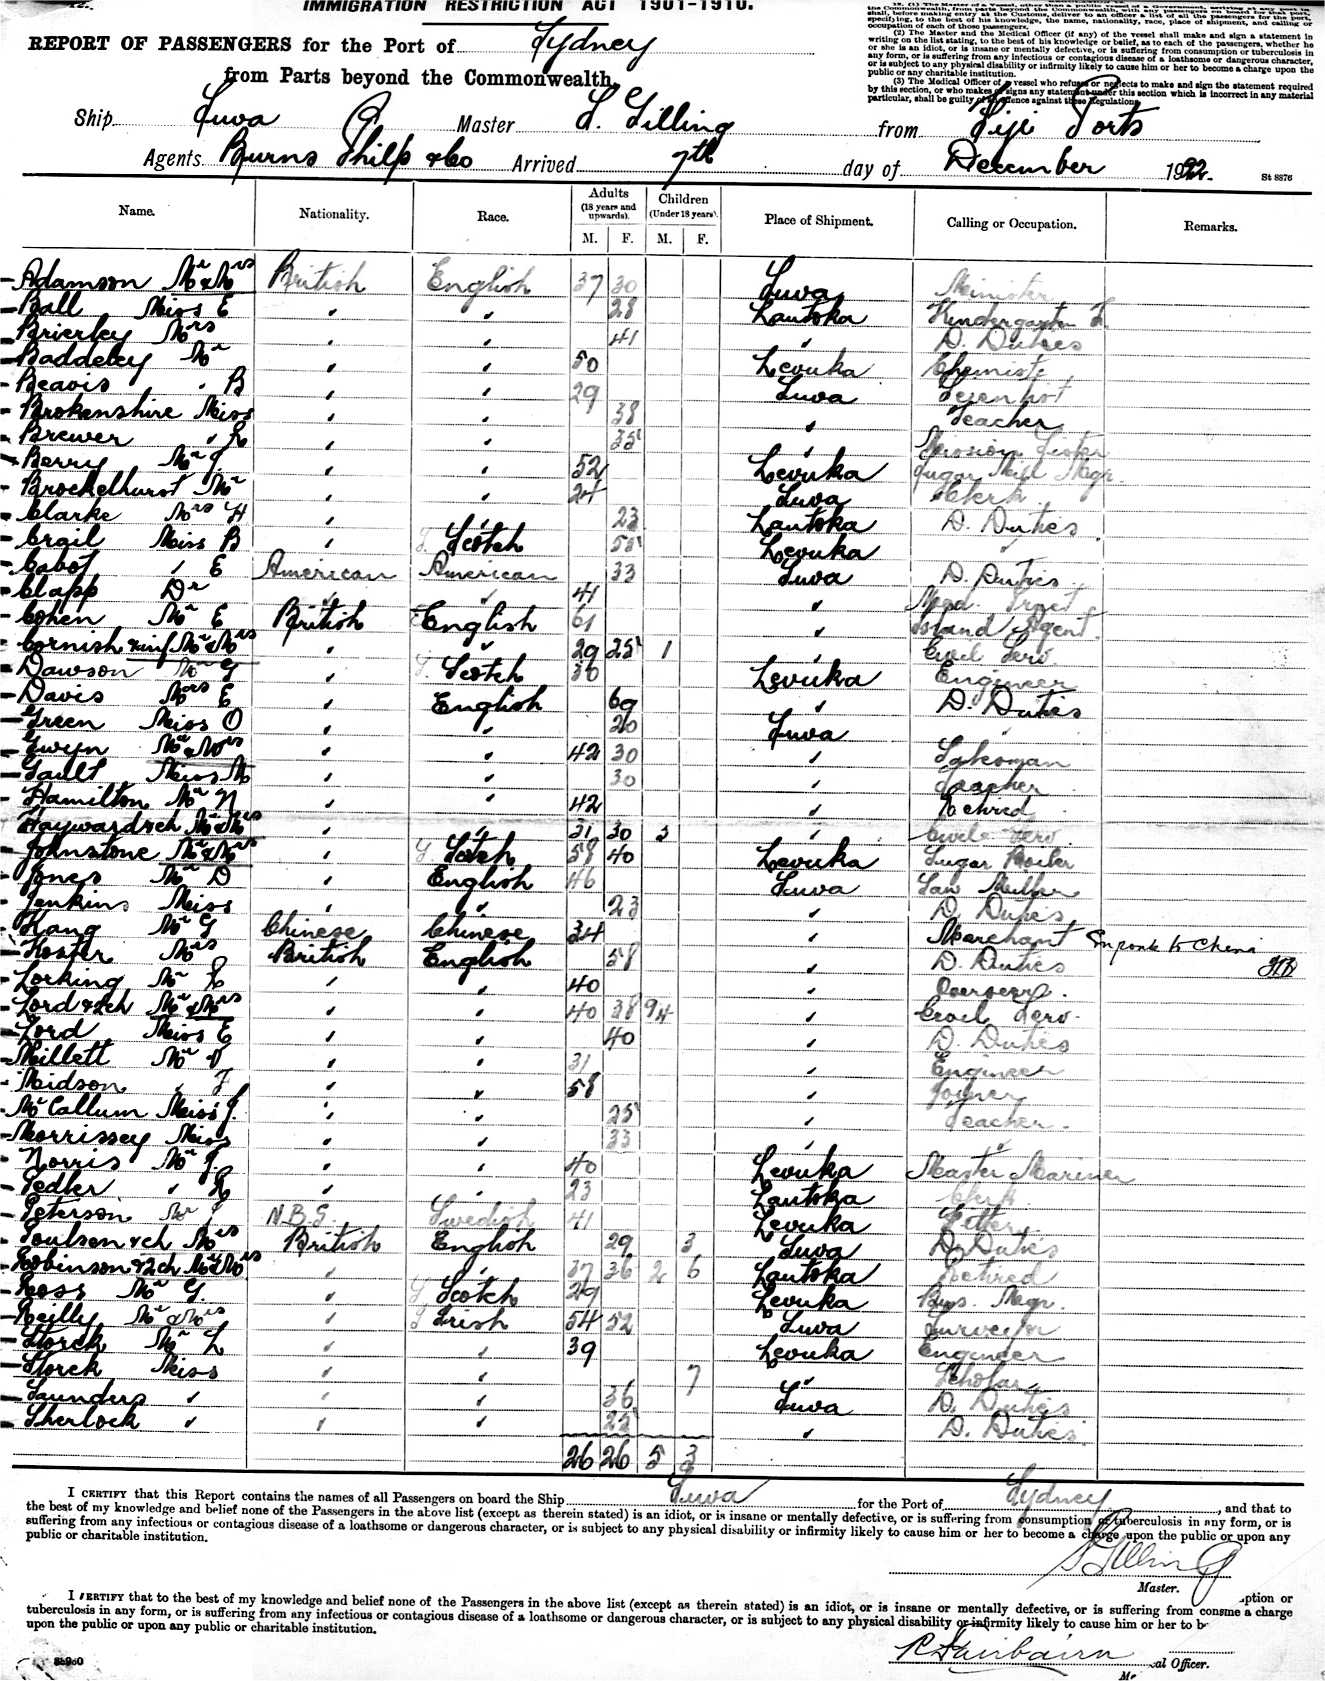 IMMIGRATION RESTRICTION ACT 1901-1910.
REPORT OF PASSENGERS for the Port of Sydney
from Parts beyond the Commonwealth.
(2) The Master and the Medical Officer (if any) of the vessel shall make and sign a statement in
writing on the list stating, to the best of his knowledge or belief, as to each of the passengers, whether he
or she is an idiot, or is insane or mentally defective, or is suffering from consumption or tuberculosis in
any form, or is suffering from any infectious or contagious disease of a loathsome or dangerous character,
or is subject to any physical disability or infirmity likely to cause him or her to become a charge upon the
public or any charitable institution.
(3) The Medical Officer of a vessel who refuses or neglects to make and sign the statement required
by this section, or who makes or signs any statement under this section which is incorrect in any material
particular, shall be guilty of an offence against these Regulations.
Ship Suva Master S. Gilling from Fiji Ports
Agents Burns Philp & Co Arrived 7th day of December 1922. St 8876
Name. Nationality. Race. Adults (18 years and upwards). M. F. Children (Under 18 years). M. F. Place of Shipment. Calling or Occupation. Remarks.
Adamson Mr & Mrs British English 37 30 Suva Minister
Ball Miss E " " 28 Lautoka Kindergarten
Brierley Mrs " " 41 " D. Duties
Baddeley Mr " " 50 Levuka Chemist
Beavis " B " " 29 Suva
Brokenshire Miss " " 38 " Teacher
Brewer " L " " 35 " Mission Sister
Berry Mr J. " " 52 Levuka Sugar Mill Mgr.
Brockelhurst Mr " " 24 Suva Clerk
Clarke Mrs H " " 23 Lautoka D. Duties
Crail Miss B " Scotch 55 Levuka "
Cabot " E American American 33 Suva D. Duties
Clapp Dr " " 41 "
Cohen Mr E British English 61 " Island Agent
Cornish & inf Mr & Mrs " " 29 25 1 " Civil Serv.
Dawson Mr G " Scotch 36 Levuka Engineer
Davis Mrs E " English 69 " D. Duties
Green Miss O " " 20 Suva "
Gwyn Mr & Mrs " " 42 30 "
Gault Miss M " " 30 " Teacher
Hamilton Mr N " " 42 " Retired
Hayward & ch Mr & Mrs " " 31 30 3 " Civil Serv.
Johnstone Mr & Mrs " Scotch 58 40 Levuka Sugar Boiler
Jones Mr D " English 46 Suva Saw Miller
Jenkins Miss " " 23 " D. Duties
Kang Mr G Chinese Chinese 34 " Merchant En route to China
Koster Mrs British English 58 " D. Duties
Lorking Mr L " " 40 " Overseer.
Lord & 2ch Mr & Mrs " " 40 38 9 4 " Civil Serv.
Lord Miss E " " 40 " D. Duties
Millett Mr V " " 31 " Engineer
Midson " F " " 58 " Joiner
McCallum Miss J. " " 25 " Teacher.
Morrissey Miss " " 33 " "
Norris Mr J. " " 40 Levuka Master Mariner
Pedler " R " " 23 Lautoka Clerk
Peterson Mr J N.B.S. Swedish 41 Levuka Fitter
Poulson & ch Mrs British English 29 3 Suva D. Duties
Robinson & 2ch Mr & Mrs " " 37 36 2 6 Lautoka Retired
Ross Mr G. " Scotch 29 Levuka Bus. Mgr.
Reilly Mr & Mrs " Irish 54 52 Suva Surveyor
Storck Mr L " " 39 Levuka Engineer
Storck Miss " " 7 " Scholar
Saunders " " " 36 Suva D. Duties
Sherlock " " " 25 " D. Duties
26 26 5 3
I CERTIFY that this Report contains the names of all Passengers on board the Ship Suva for the Port of Sydney, and that to
the best of my knowledge and belief none of the Passengers in the above list (except as therein stated) is an idiot, or is insane or mentally defective, or is suffering from consumption or tuberculosis in any form, or is
suffering from any infectious or contagious disease of a loathsome or dangerous character, or is subject to any physical disability or infirmity likely to cause him or her to become a charge upon the public or upon any
public or charitable institution.
S Gilling
Master.
I CERTIFY that to the best of my knowledge and belief none of the Passengers in the above list (except as therein stated) is an idiot, or is insane or mentally defective, or is suffering from consumption or
tuberculosis in any form, or is suffering from any infectious or contagious disease of a loathsome or dangerous character, or is subject to any physical disability or infirmity likely to cause him or her to become a charge
upon the public or upon any public or charitable institution.
R Fairbairn
Medical Officer.